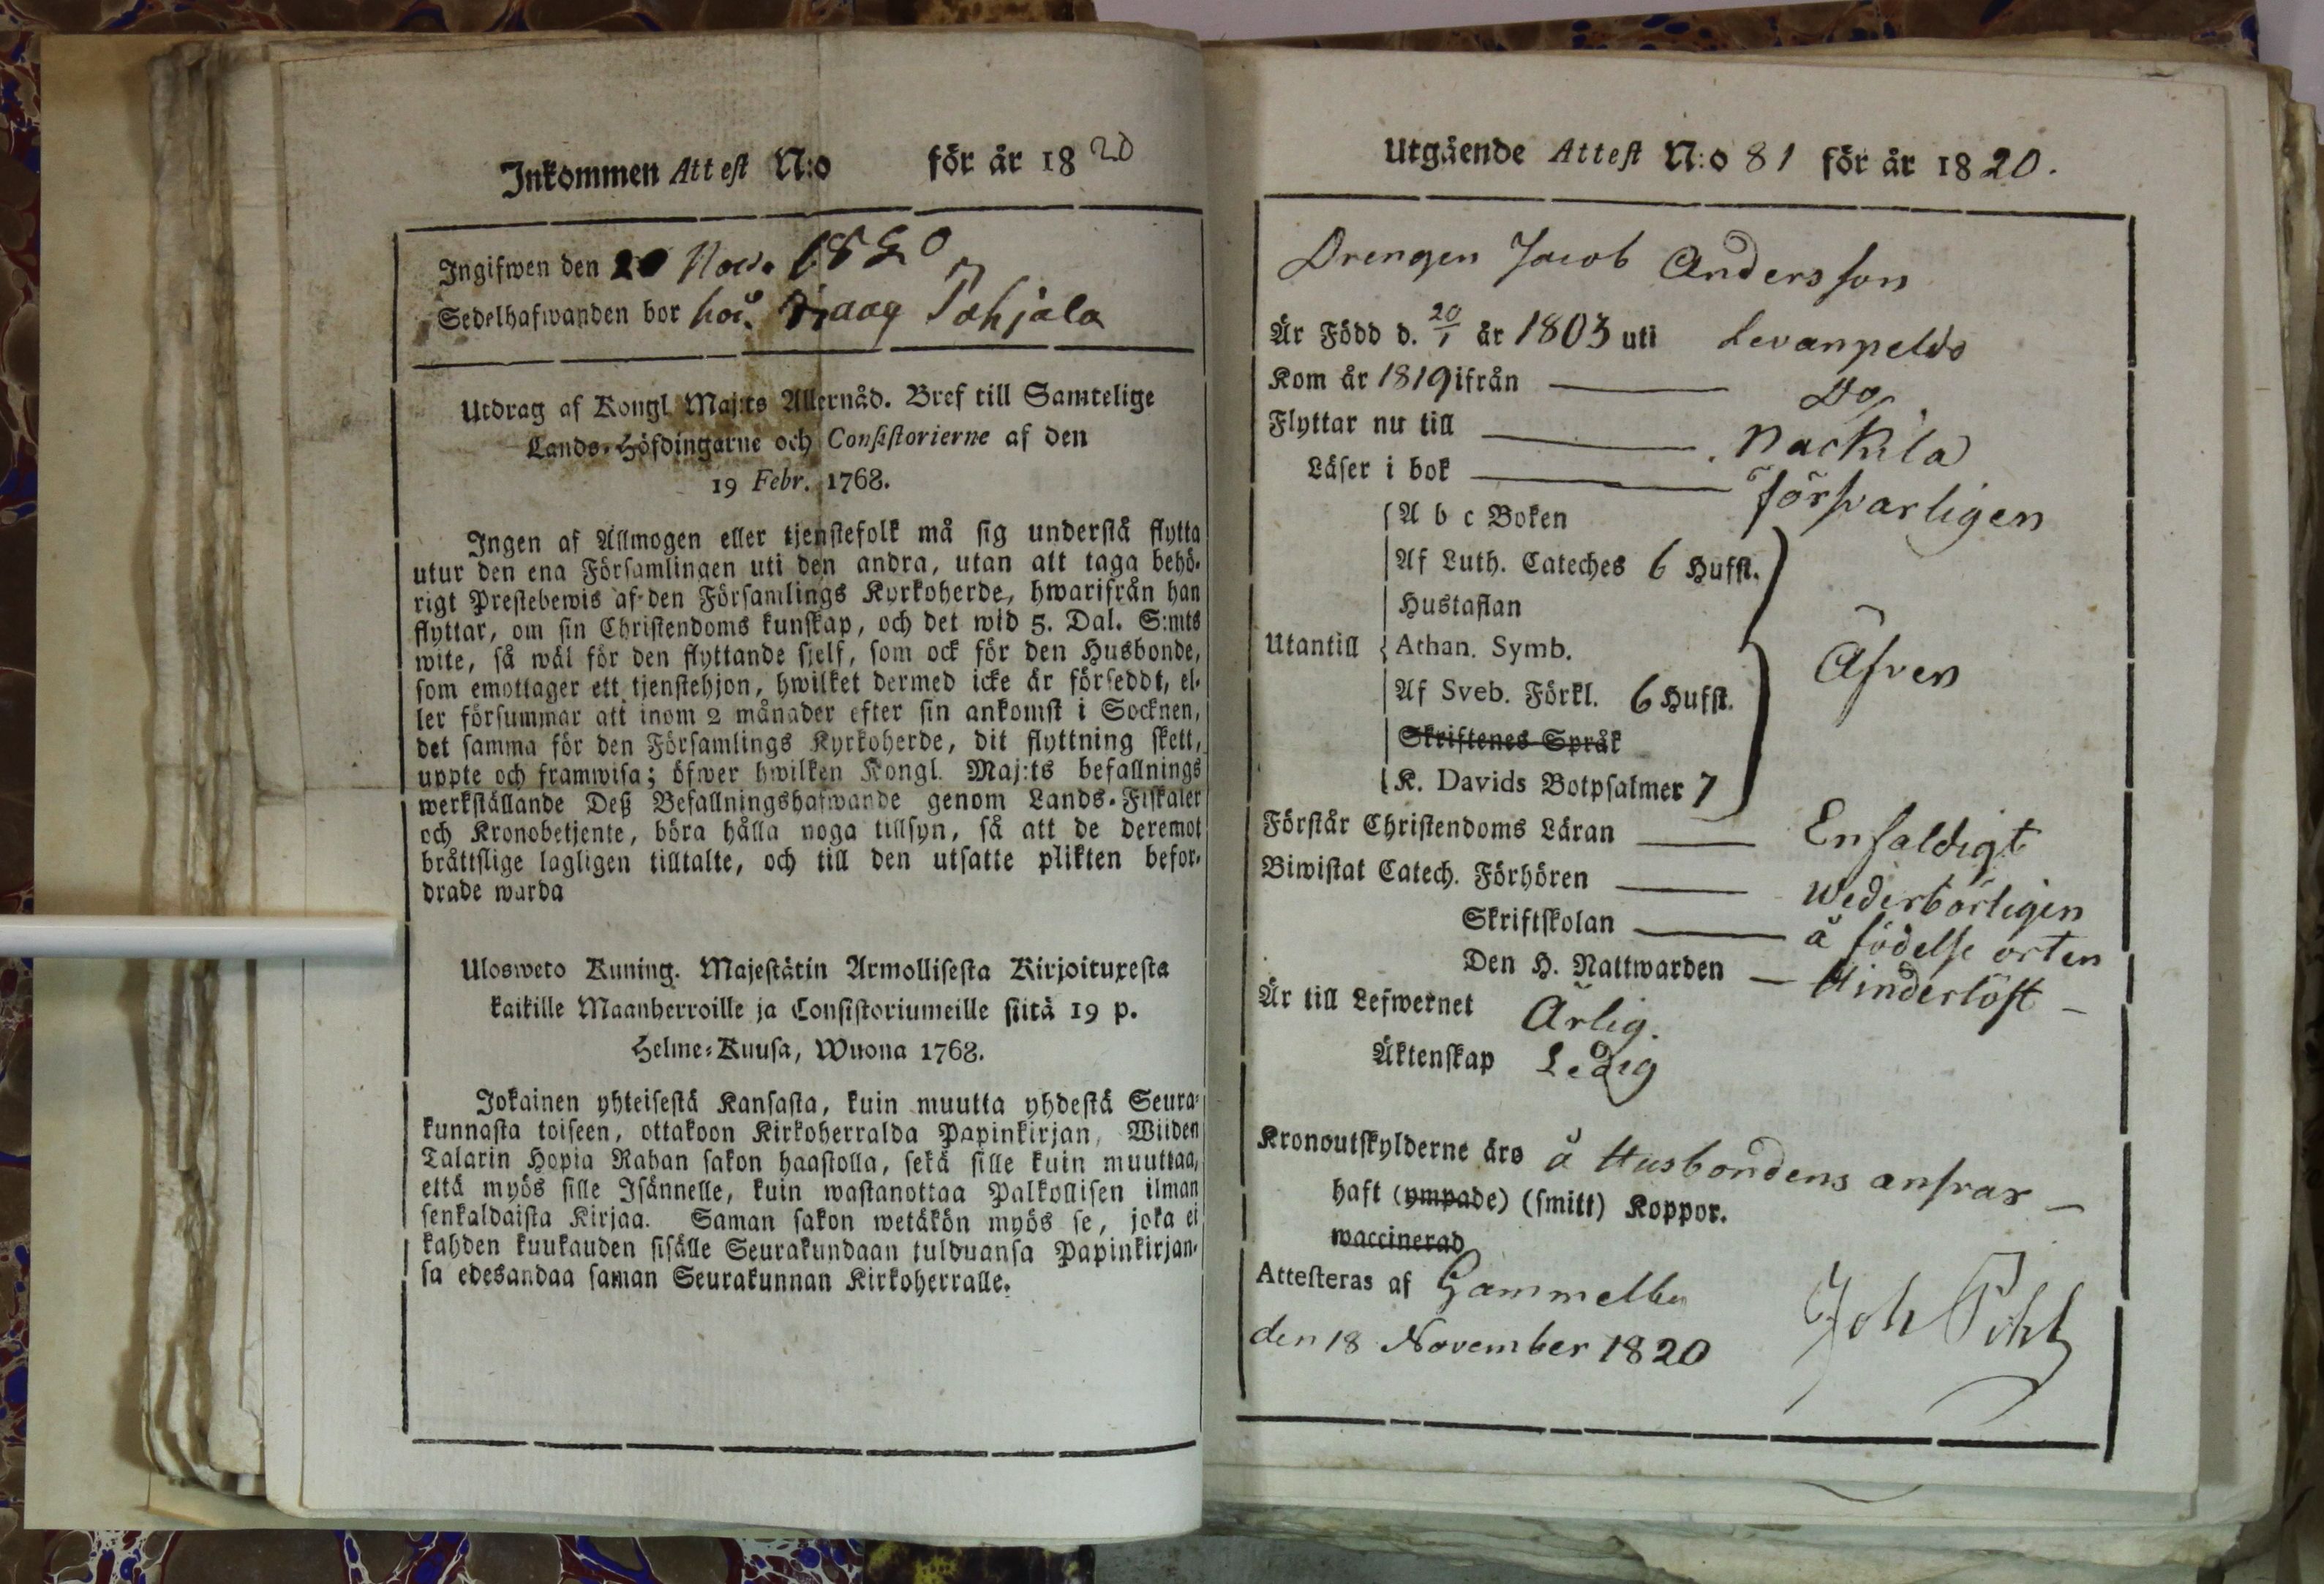 Inkommen Attest N:o för år 1820
Ingifwen den 20 Nov. 1820
Sedelhafwanden bor hos Pohjala
Utdrag af Kongl. Maj:ts Allernåd. Bref till Samtelige
Lands-Höfdingarne och Consistorierne af den
19 Febr. 1768.
Ingen af Allmogen eller tjenstefolk må sig understå flytta
utur den ena Församlingen uti den andra, utan att taga behö-
rigt Prestebewis af den Församlings Kyrkoherde, hwarifrån han
flyttar, om sin Christendoms kunskap, och det wid 5. Dal. S:mts
wite, så wäl för den flyttande sjelf, som ock för den Husbonde,
som emottager ett tjenstehjon, hwilket dermed icke är försedt, el-
ler försummar att inom 2 månader efter sin ankomst i Socknen,
det samma för den Församlings Kyrkoherde, dit flyttning skett,
uppte och framwisa; öfwer hwilken Kongl. Maj:ts befallnings
werkställande Deß Befallningshafwande genom Lands-Fiskaler
och Kronobetjente, böra hålla noga tillsyn, så att de deremot
bråttslige lagligen tilltalte, och till den utsatte plikten befor-
drade warda
Ulosweto Kuning. Majestätin Armollisesta Kirjoituxesta
kaikille Maanherroille ja Consistoriumeille siitä 19 p.
Helme-Kuusa, Wuona 1768.
Jokainen yhteisestä Kansasta, kuin muutta yhdestä Seura-
kunnasta toiseen, ottakoon Kirkoherralda Papinkirjan, Wiiden
Talarin Hopia Rahan sakon haastolla, sekä sille kuin muuttaa,
että myös sille Isännelle, kuin wastanottaa Palkollisen ilman
senkaldaista Kirjaa. Saman sakon wetäkön myös se, joka ei
kahden kuukauden sisälle Seurakundaan tulduansa Papinkirjan-
sa edesandaa saman Seurakunnan Kirkoherralle.
Utgående Attest N:o 81 för år 1820.
Drengen Jacob Andersson
Är Född d. 20/1 år 1803 uti Levanpeldo
Kom år 1819 ifrån Do
Flyttar nu till Nackila
Läser i bok Försvarligen
A b c Boken
Af Luth. Cateches 6 Hufst.
Hustaflan
Utantill Athan. Symb. Äfven
Af Sveb. Förkl. 6 Hufst.
Skriftenes Språk
K. Davids Botpsalmer 7
Förstår Christendoms Läran Enfaldigt
Biwistat Catech. Förhören wederbörligen
Skriftskolan å födelse orten
Den H. Nattwarden Hinderlöst
Är till Lefwernet Ärlig.
Äktenskap Ledig
Kronoutskylderne äro å Husbondens ansvar
haft (ympade) (smitt) Koppor.
waccinerad
Attesteras af Gammelby Joh
den 18 November 1820